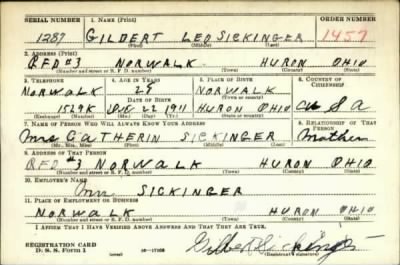 SERIAL NUMBER 1. NAME (Print) ORDER NUMBER
1287 GILBERT LEO SICKINGER 1457
(First) (Middle) (Last)
2. ADDRESS (Print)
RFD #3 NORWALK HURON OHIO
(Number and street or R. F. D. number) (Town) (County) (State)
3. TELEPHONE 4. AGE IN YEARS 5. PLACE OF BIRTH 6. COUNTRY OF CITIZENSHIP
NORWALK 29 NORWALK
DATE OF BIRTH (Town or county)
22 1911 HURON OHIO U S A
(Exchange) (Number) (Mo.) (Day) (Yr.) (State or country)
7. NAME OF PERSON WHO WILL ALWAYS KNOW YOUR ADDRESS 8. RELATIONSHIP OF THAT PERSON
Mrs CATHERIN SICKINGER Mother
(Mr., Mrs., Miss) (First) (Middle) (Last)
9. ADDRESS OF THAT PERSON
RFD #3 NORWALK HURON OHIO
(Number and street or R. F. D. number) (Town) (County) (State)
10. EMPLOYER'S NAME
SICKINGER
11. PLACE OF EMPLOYMENT OR BUSINESS
NORWALK HURON OHIO
(Number and street or R. F. D. number) (Town) (County) (State)
I AFFIRM THAT I HAVE VERIFIED ABOVE ANSWERS AND THAT THEY ARE TRUE.
REGISTRATION CARD
D. S. S. Form 1 (over) Gilbert Sickinger
(Registrant's signature)